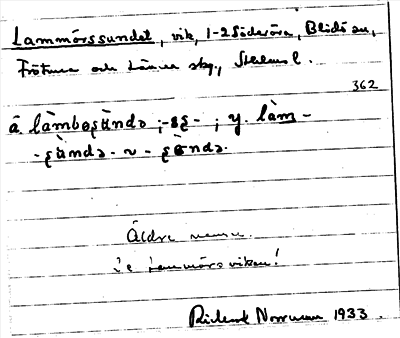 Lammörssundet, vik, 1-2 Söderöra, Blidö sn,
Frötuna och Länna skg., Sthlms l.
362
å. làmbosùndə ; -sε- ; y. làm-
-sùndə ~ -sòndə.
Äldre namn.
se Lammörsviken!
Rickard Norrman 1933.